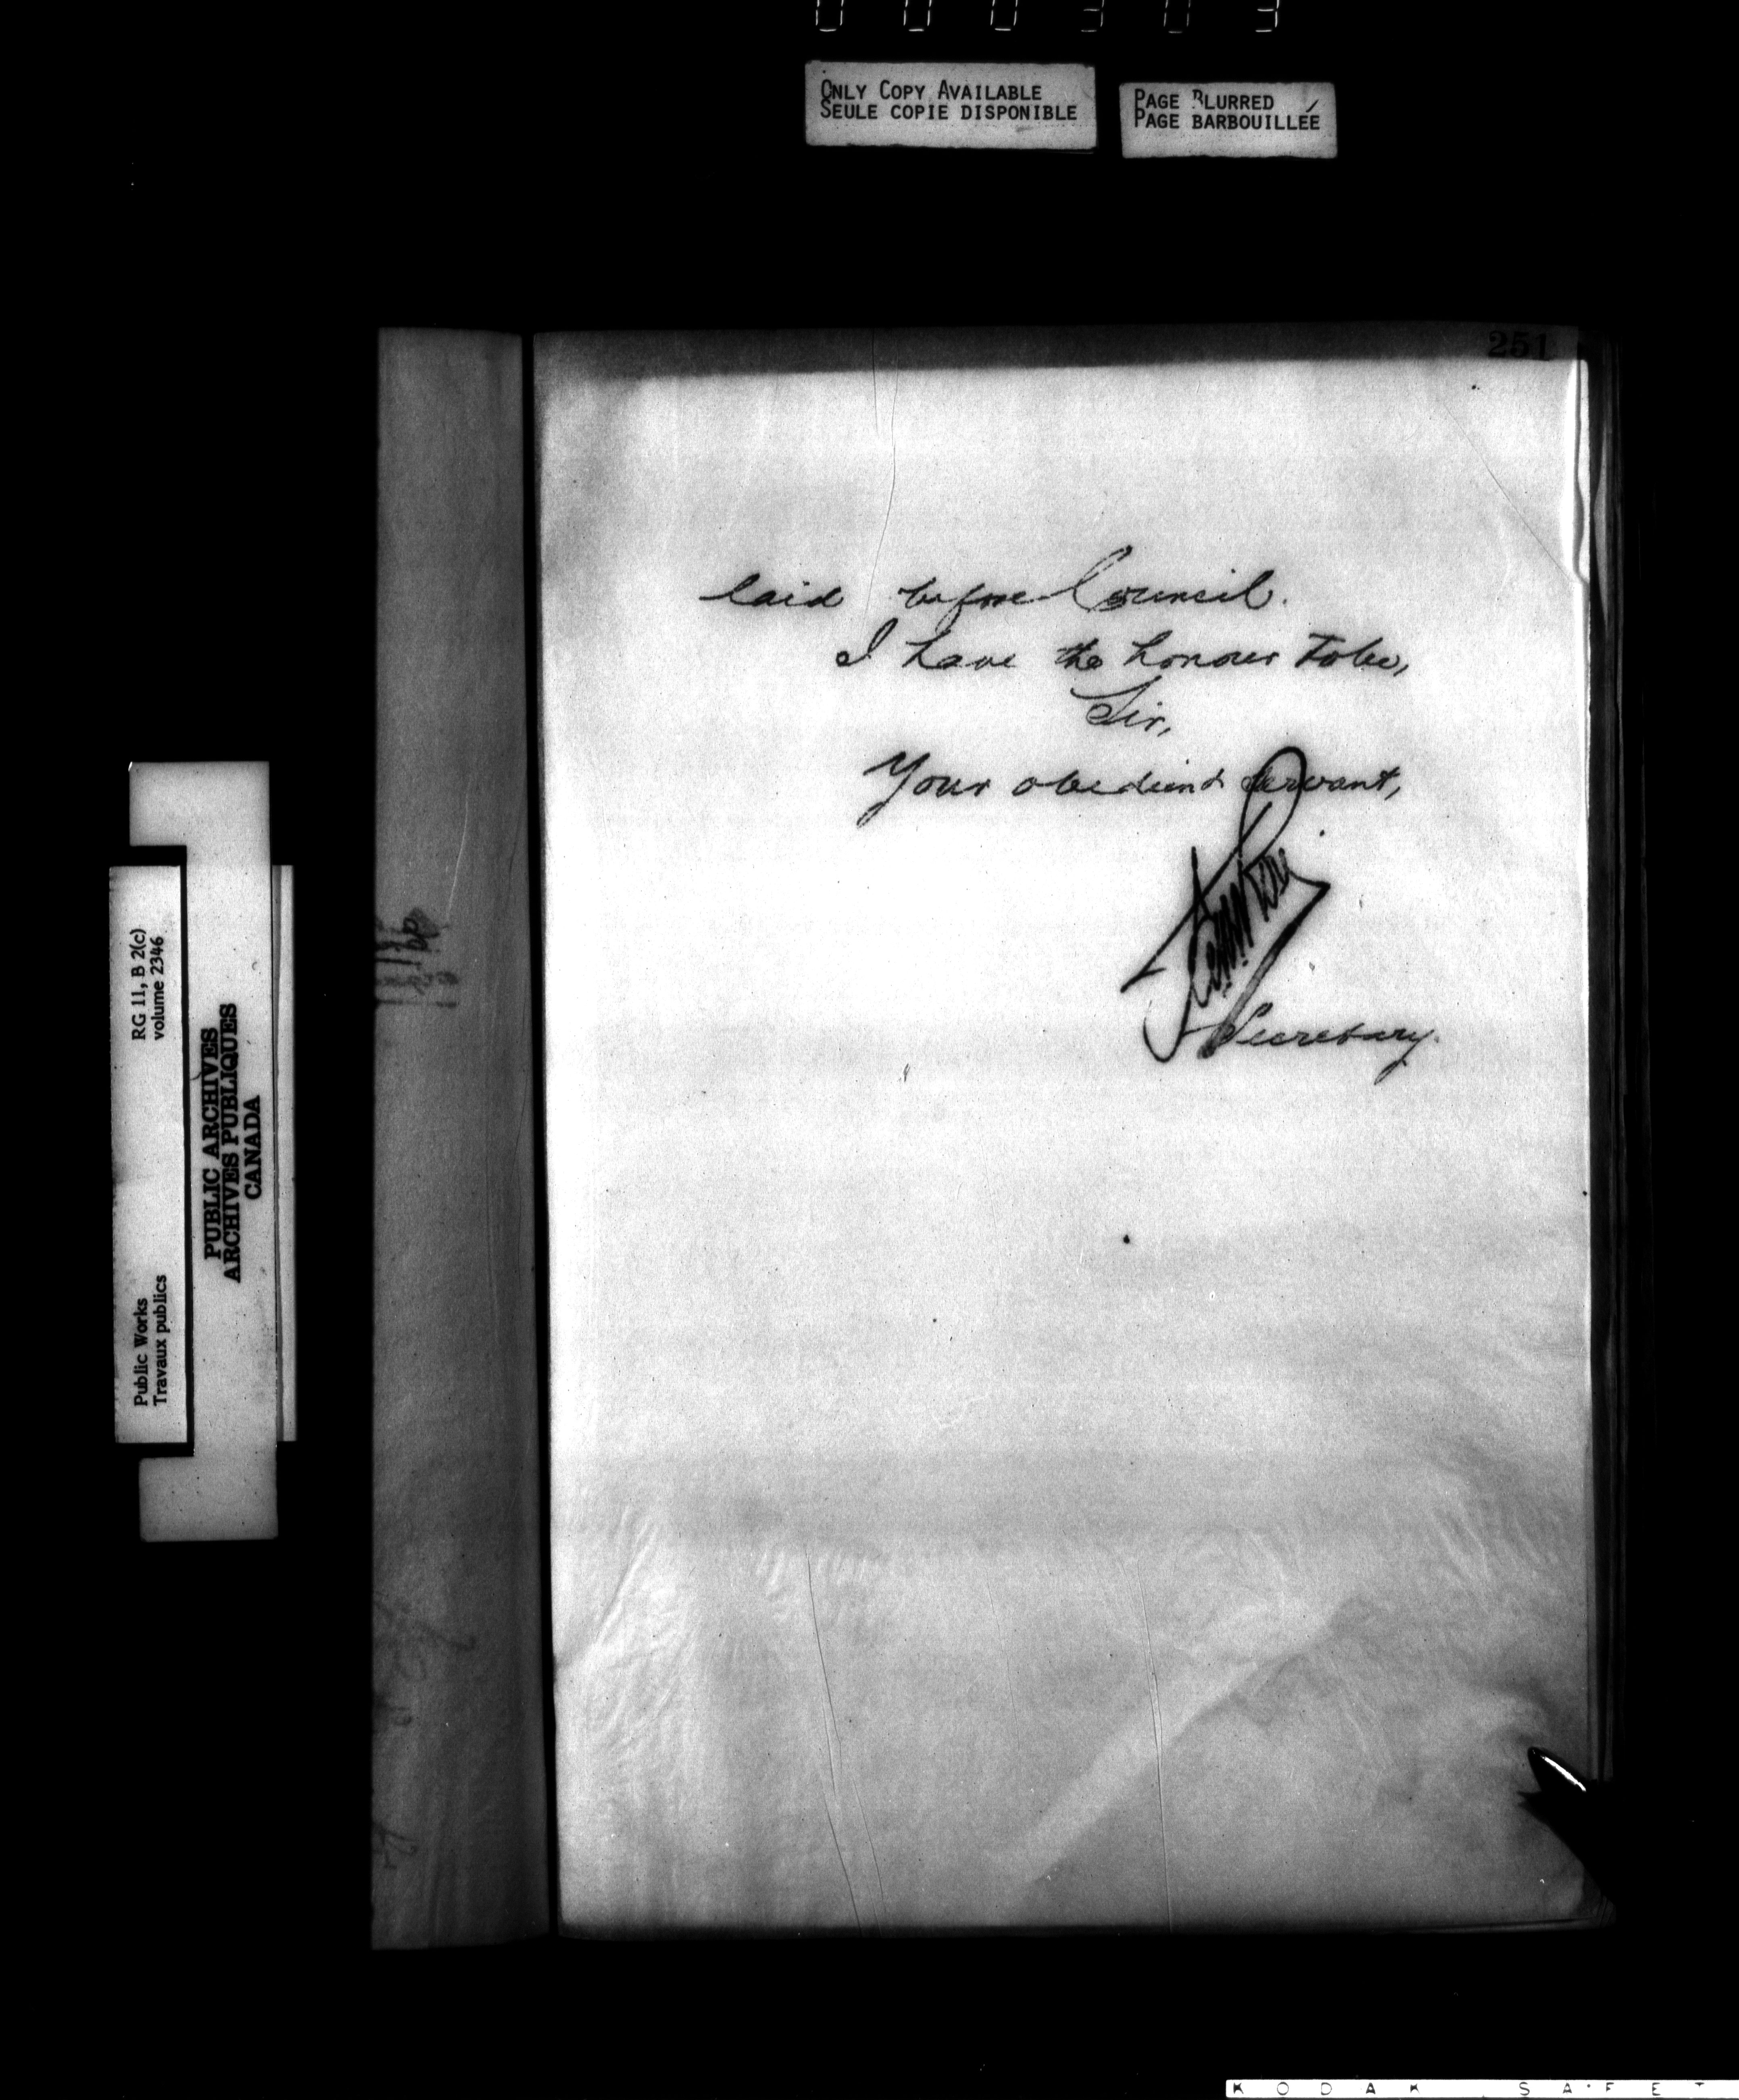 000303
ONLY COPY AVAILABLE
SEULE COPIE DISPONIBLE
PAGE BLURRED
PAGE BARBOUILLÉE
251
laid before Council.
I have the honour to be,
Sir,
Your obedient servant,
Secretary.
RG 11, B 2(c)
volume 2346
Public Works
Travaux publics
PUBLIC ARCHIVES
ARCHIVES PUBLIQUES
CANADA
KODAK SAFET